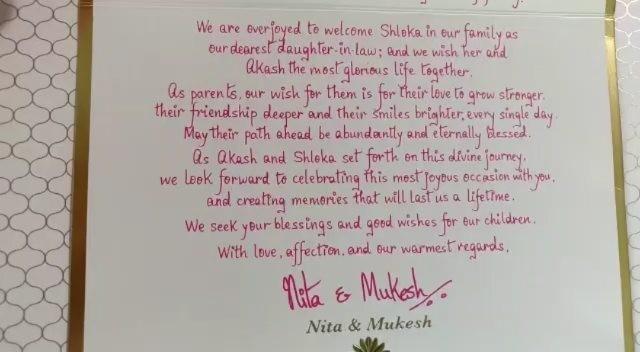 We are overjoyed to welcome Shloka in our family as
our dearest daughter-in-law; and we wish her and
Akash the most glorious life together.
As parents, our wish for them is for their love to grow stronger,
their friendship deeper and their smiles brighter, every single day.
May their path ahead be abundantly and eternally blessed.
As Akash and Shloka set forth on this divine journey,
we look forward to celebrating this most joyous occasion with you,
and creating memories that will last us a lifetime.
We seek your blessings and good wishes for our children.
With love, affection, and our warmest regards,
Nita & Mukesh
Nita & Mukesh